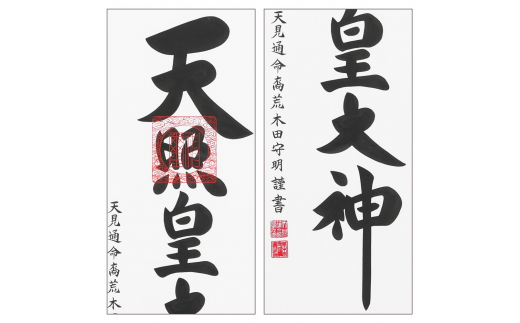 天照皇
天見通命裔荒木
皇大神
天見通命裔荒木田守明謹書